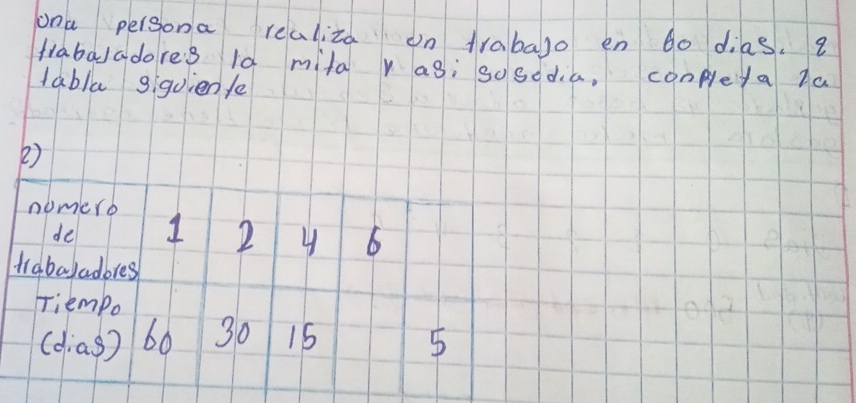 una persona realiza un trabajo en 60 dias. 2
trabajadores la mita y asi susedia, conpleta la
tabla siguiente
2)
numero de trabajadores 1 2 4 6
Tiempo (dias) 60 30 15 5